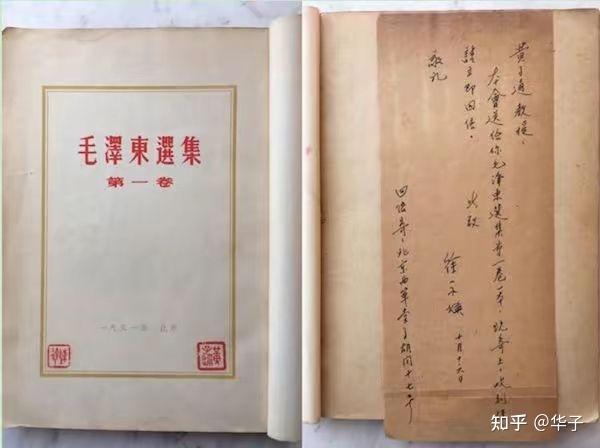 毛澤東選集
第一卷
一九五一年 北京
黄子通教授：
本會送給你毛澤東選集第一卷一本，現寄上，收到後
請立即回信。
此致
敬礼
徐永煐 十月十六日
回信寄：北京西單堂子胡同十七号
知乎 @华子